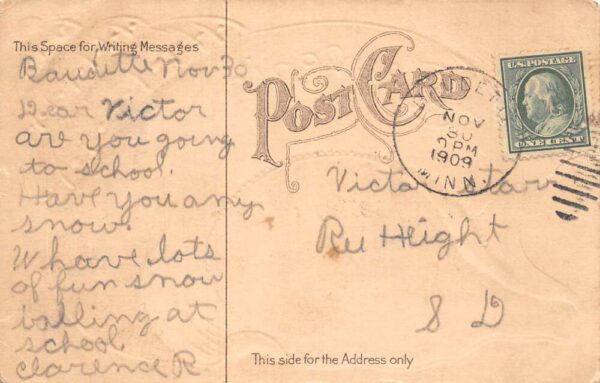 This Space for Writing Messages
Baudette Nov 30
Dear Victor
are you going
to school.
Have you any
snow.
W have lots
of fun snow
balling at
school
Clarence R
POST CARD
NOV
30
PM
1909
MINN
U.S. POSTAGE
ONE CENT
Victor
Ree Height
S D
This side for the Address only